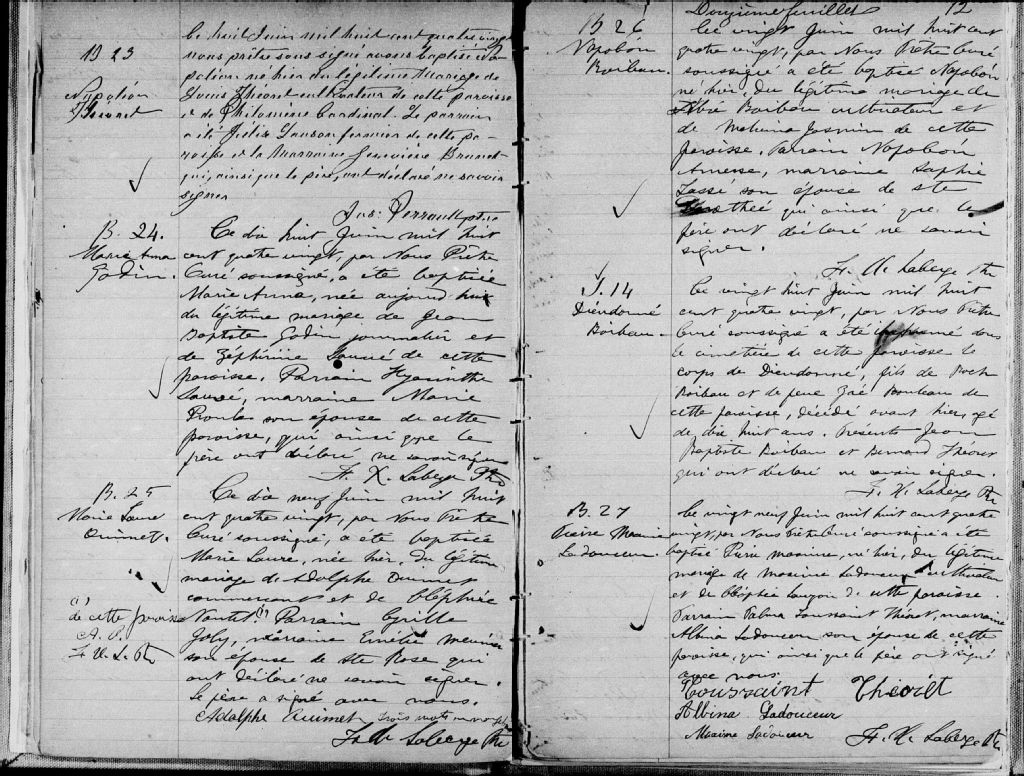 B 23
Napoléon
Théoret
Ce huit Juin mil huit cent quatre vingt
nous prêtre sous signé avons baptisé Na-
poléon né hier du légitime Mariage de
Louis Théoret cultivateur de cette paroisse
et de Philomène Cardinal. Le parrain
a été Fermier de cette pa-
roisse et la Marraine Geneviève Brunet
qui, ainsi que le père, ont déclaré ne savoir
signer
Jos: Perrault ptre
B. 24.
Marie Anna
Godin.
Ce dix huit Juin mil huit
cent quatre vingt, par Nous Prêtre
Curé soussigné, a été baptisée
Marie Anna, née aujourd'hui
du légitime mariage de Jean
Baptiste Godin journalier et
de Zéphirine Sauvé de cette
paroisse. Parrain Hyacinthe
Sauvé, marraine Marie
son épouse de cette
paroisse, qui ainsi que le
père ont déclaré ne savoir signer
F. X. Laberge Ptre
B. 25
Marie Laure
Ouimet.
Ce dix neuf Juin mil huit
cent quatre vingt, par Nous Prêtre
Curé soussigné, a été baptisée
Marie Laure, née hier, du légitime
mariage de Adolphe Ouimet
commerçant et de Cléophée
(1) Parrain
Joly, marraine Emélie
son épouse de Ste Rose qui
ont déclaré ne savoir signer.
Le père a signé avec nous.
Adolphe Ouimet trois mots
F. X. Laberge Ptre
(1)
de cette paroisse
F. X. L. Ptre
Douzième feuillet 12
B 26
Napoléon
Boileau.
Ce vingt Juin mil huit cent
quatre vingt, par Nous Prêtre Curé
soussigné a été baptisé Napoléon
né hier, du légitime mariage de
Boileau cultivateur et
de Jasmin de cette
paroisse. Parrain Napoléon
marraine Sophie
Lassé son épouse de Ste
qui ainsi que le
père ont déclaré ne savoir
signer.
F. X. Laberge Ptre
S. 14
Dieudonné
Boileau.
Ce vingt huit Juin mil huit
cent quatre vingt, par Nous Prêtre
Curé soussigné a été inhumé dans
le cimetière de cette paroisse le
corps de Dieudonné, fils de Roch
Boileau et de feue Zoé de
cette paroisse, décédé avant hier, agé
de dix huit ans. Présents Jean
Baptiste Boileau et Bernard Théoret
qui ont déclaré ne savoir signer.
F. X. Laberge Ptre
B. 27
Pierre Maxime
Ladouceur.
Ce vingt neuf Juin mil huit cent quatre
vingt, par Nous Prêtre Curé soussigné a été
baptisé Pierre Maxime, né hier, du légitime
mariage de Maxime Ladouceur cultivateur
et de Cléophée Lauzon de cette paroisse.
Parrain Toussaint Théoret, marraine
Albina Ladouceur son épouse de cette
paroisse, qui ainsi que le père ont signé
avec nous.
Toussaint Théorêt
Albina Ladouceur
Maxime Ladouceur F. X. Laberge Ptre